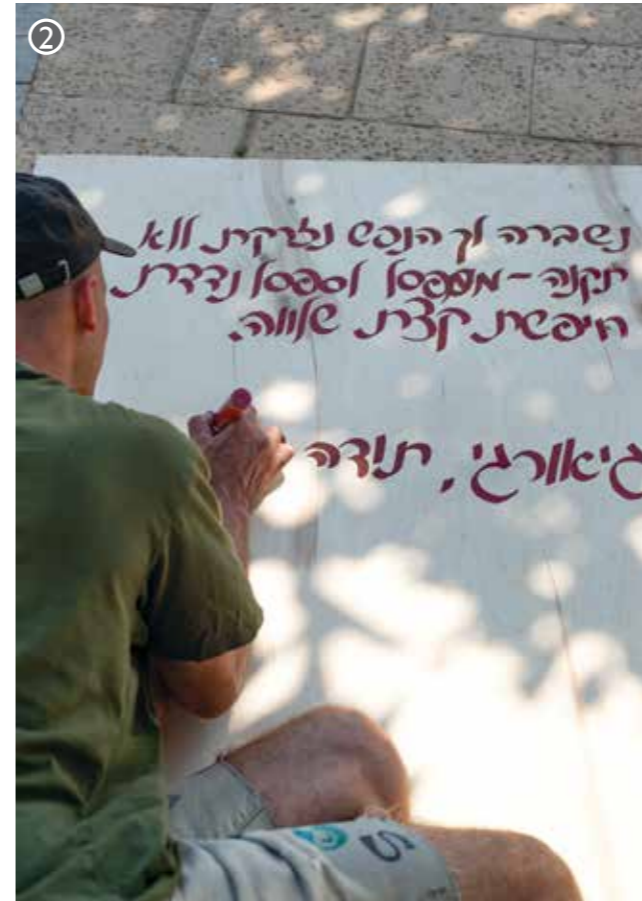 ②
נשברה לך הנפש נזרקת ללא
תקנה – מספסל לספסל נדדת
חיפשת קצת שלווה.
גיאורגי, תודה